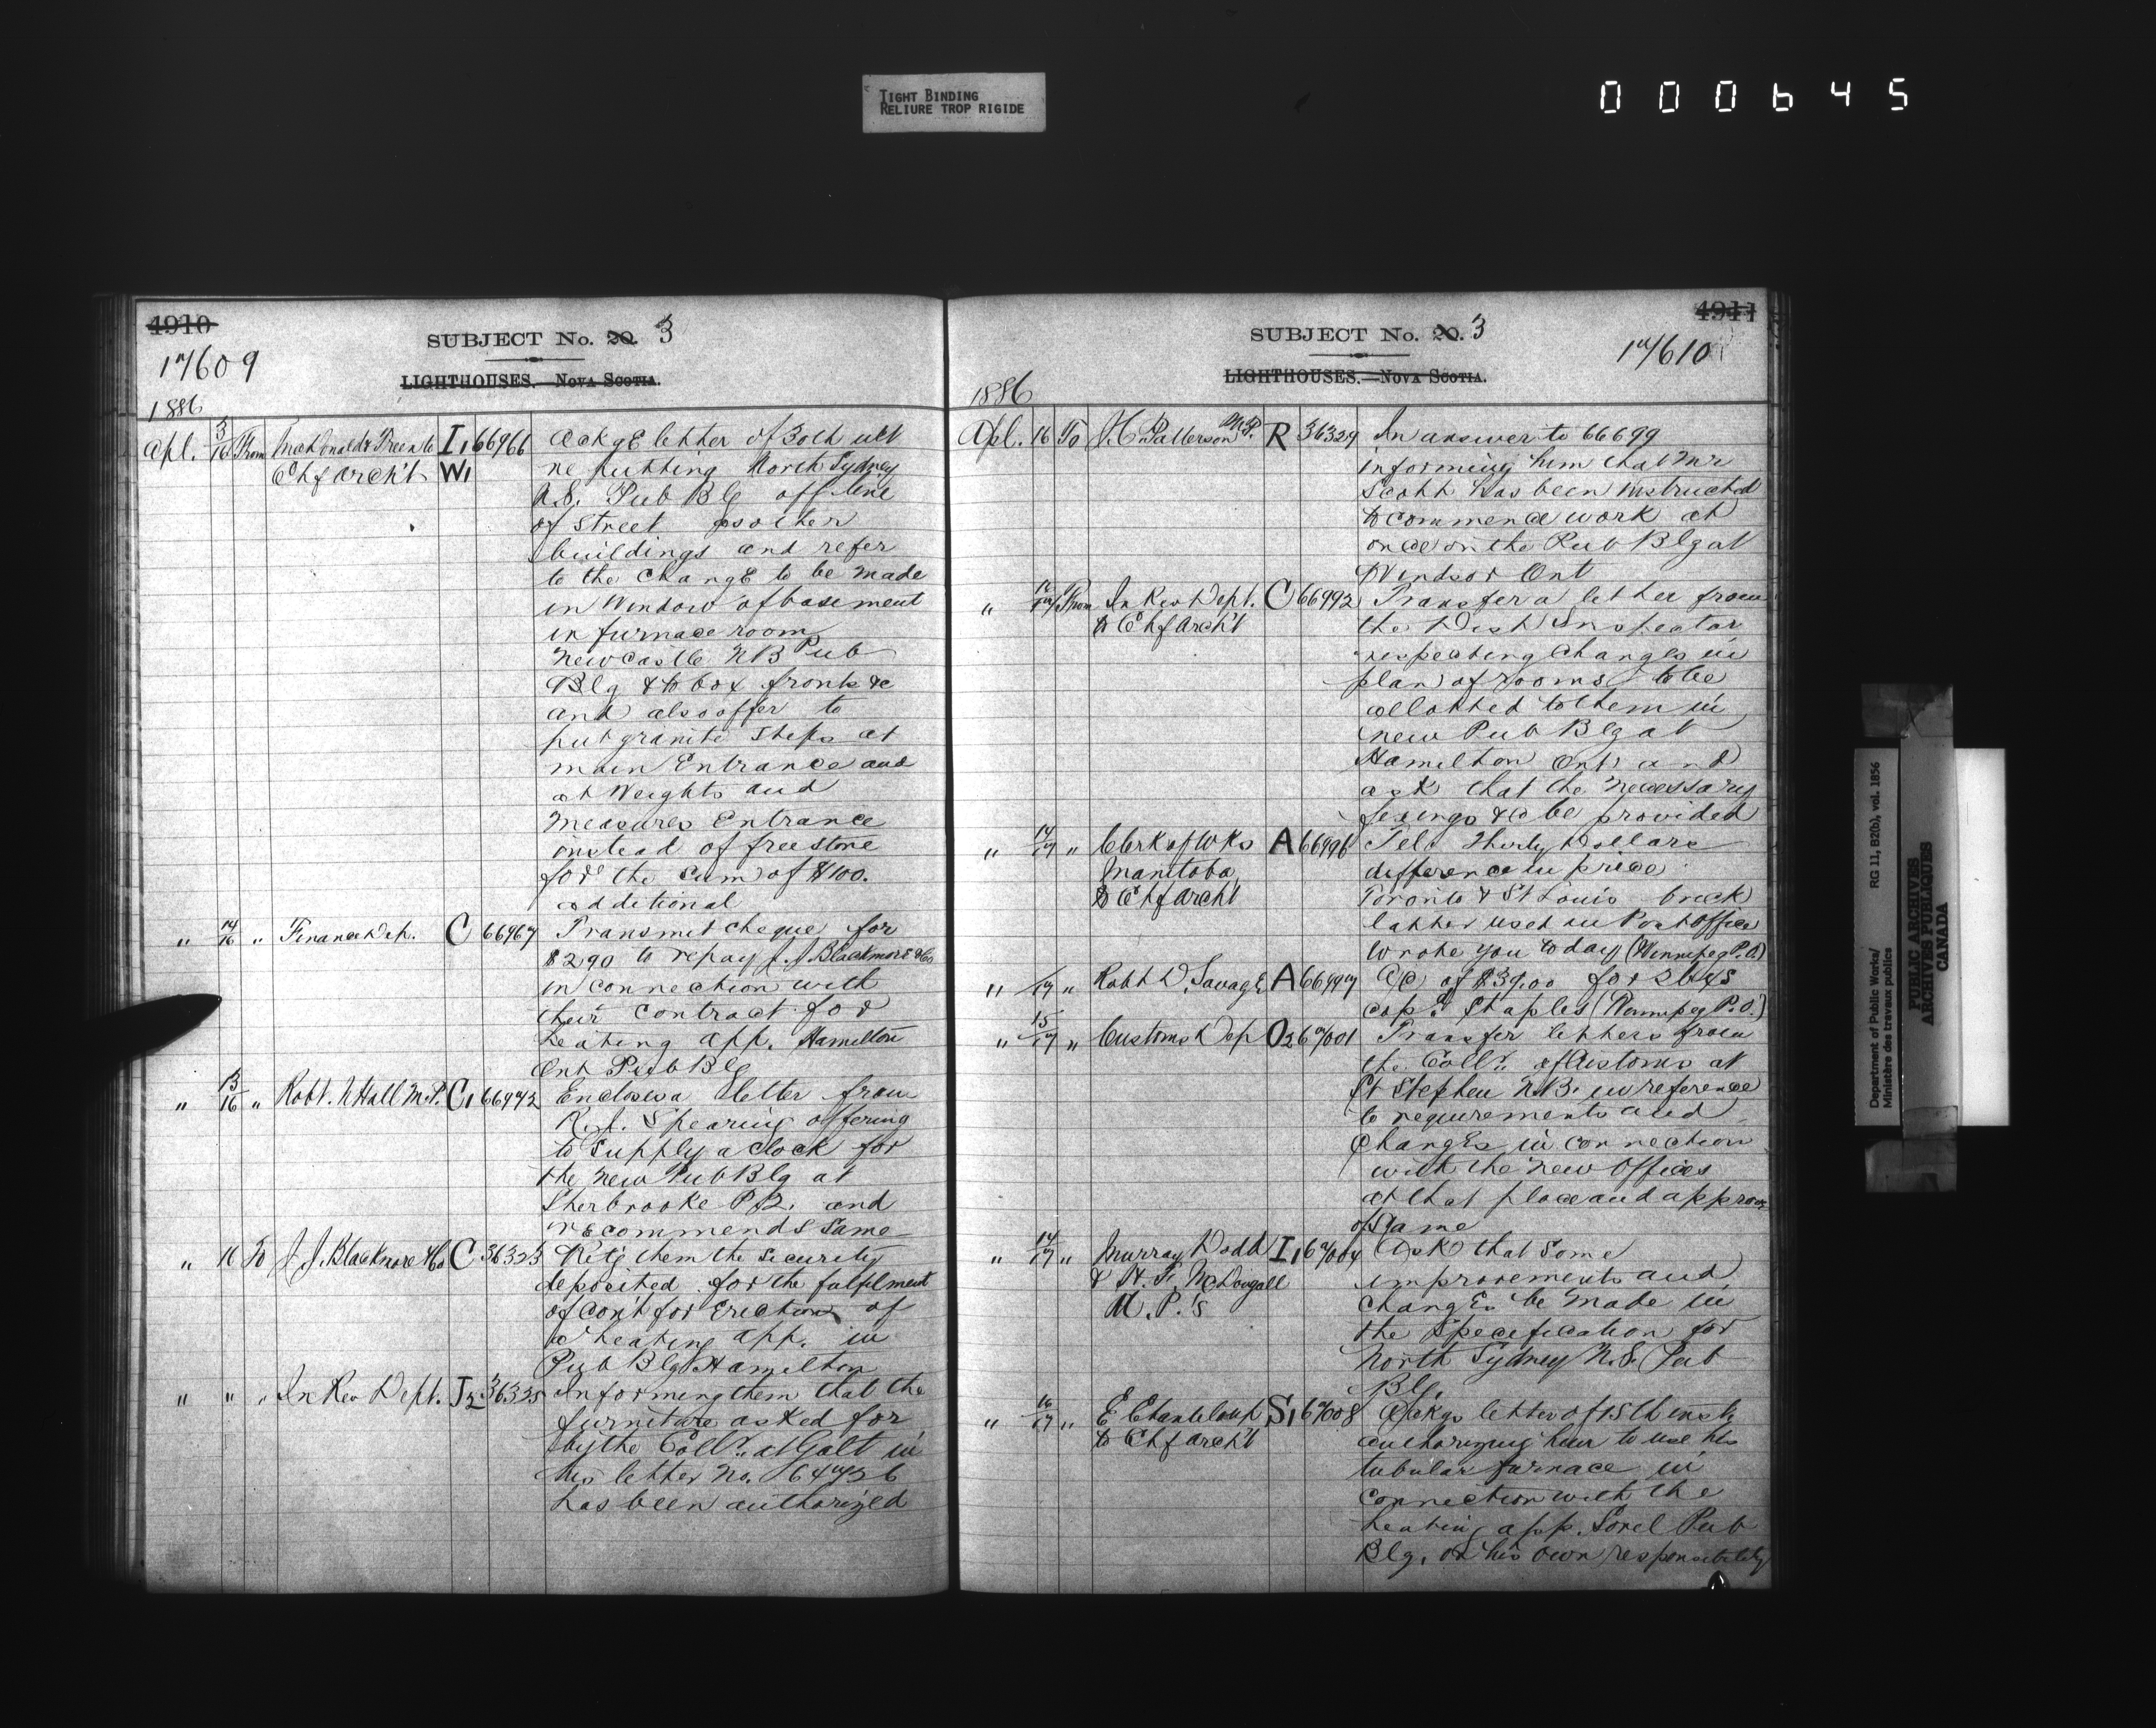 TIGHT BINDING
RELIURE TROP RIGIDE
000645
4910
17609
SUBJECT No. 20. 3
LIGHTHOUSES.—NOVA SCOTIA.
1886
Apl. 3/16 From MacDonald & Free & Co I1 66966 Ackge letter of 30th ult
Chf Arch't W1 re putting North Sydney
N.S. Pub Blg off line
of street as other
buildings and refer
to the change to be made
in Window of basement
in furnace room
Newcastle NB Pub
Blg & to box fronts &c
and also offer to
put granite steps at
main Entrance and
at Weights and
Measures Entrance
instead of freestone
for the sum of $100.
additional
" 14/16 " Finance Dep. C 66967 Transmit cheque for
$290 to repay J. J Blackmore & Co
in connection with
their contract for
heating app. Hamilton
Ont Pub Blg
" 13/16 " Robt. N Hall M.P. C1 66972 Encloses a letter from
R. J. Spearing offering
to supply a clock for
the new Pub Blg at
Sherbrooke P.Q. and
recommends same
" 16 To J. J. Blackmore & Co C 36323 Ret'g them the security
deposited for the fulfilment
of con't for Erection of
a heating app. in
Pub Blg Hamilton
" " " In Rev Dept. J2 36325 Informing them that the
furniture asked for
by the Coll'r. at Galt in
his letter No. 64726
has been authorized
4911
SUBJECT No. 20. 3
17610
LIGHTHOUSES.—NOVA SCOTIA.
1886
Apl. 16 To J.C. Patterson M.P. R 36329 In answer to 66699
informing him that Mr
Scott has been instructed
to commence work at
once on the Pub Blg at
Windsor Ont
" 16/17 From In Rev Dept. C 66992 Transfer a letter from
to Chf Arch't the Dist Inspector
respecting changes in
plan of rooms to be
allotted to them in
new Pub Blg at
Hamilton Ont and
ask that the necessary
fixings &c be provided
" 14/17 " Clerk of Wks A 66996 Tel. Thirty Dollars
Manitoba difference in price
to Chf Archt Toronto & St Louis brick
latter used in Post Office
wrote you today (Winnipeg P.O)
" /17 " Robt D. Savage A 66997 A/c of $39.00 for
cop. Staples (Winnipeg P.O.)
" 15/17 " Customs Dep O2 67001 Transfer letters from
the Coll'r. of Customs at
St Stephen N.B. in reference
to requirements and
changes in connection
with the new Offices
at that place and approves
of same
" 14/17 " Murray Dodd I1 67004 Ask that some
& H. F. McDougall improvements and
M.P.'s changes be made in
the Specification for
North Sydney N.S. Pub
Blg.
" 16/17 " E Chanteloup S1 67008 Ackgs letter of 15th inst
to Chf Arch't authorizing him to use his
tubular furnace in
connection with the
heating app. Sorel Pub
Blg. on his own responsibility
Department of Public Works/
Ministère des travaux publics
RG 11, B2(b), vol. 1856
PUBLIC ARCHIVES
ARCHIVES PUBLIQUES
CANADA